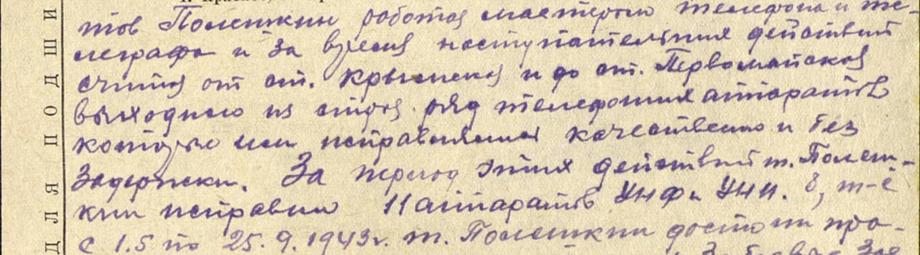 тов Полешкин работая мастером телефона и те-
леграфа и за время наступательных действий
считая от ст. Крымской и до ст. Первомайской
выходило из строя ряд телефонных аппаратов
которые им исправлялись качественно и без
задержки. За период этих действий т. Полеш-
кин исправил 11 аппаратов УНФ и УНИ. 
с 1.5 по 25.9.1943г. т. Полешкин достоин пра-
ДЛЯ ПОДШИ